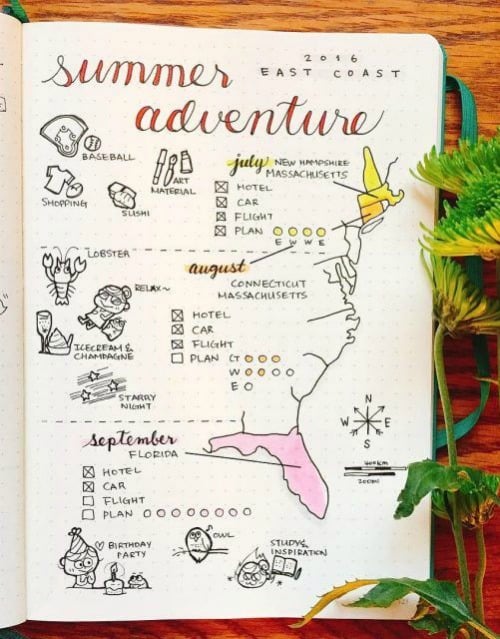 summer
2016
EAST COAST
adventure
BASEBALL
ART
MATERIAL
SHOPPING
SUSHI
july NEW HAMPSHIRE
MASSACHUSETTS
HOTEL
CAR
FLIGHT
PLAN
E W W E
LOBSTER
RELAX~
ICECREAM &
CHAMPAGNE
STARRY
NIGHT
august
CONNECTICUT
MASSACHUSETTS
HOTEL
CAR
FLIGHT
PLAN CT
W
E
N
W E
S
400KM
200MI
september
FLORIDA
HOTEL
CAR
FLIGHT
PLAN
BIRTHDAY
PARTY
OWL
STUDY &
INSPIRATION